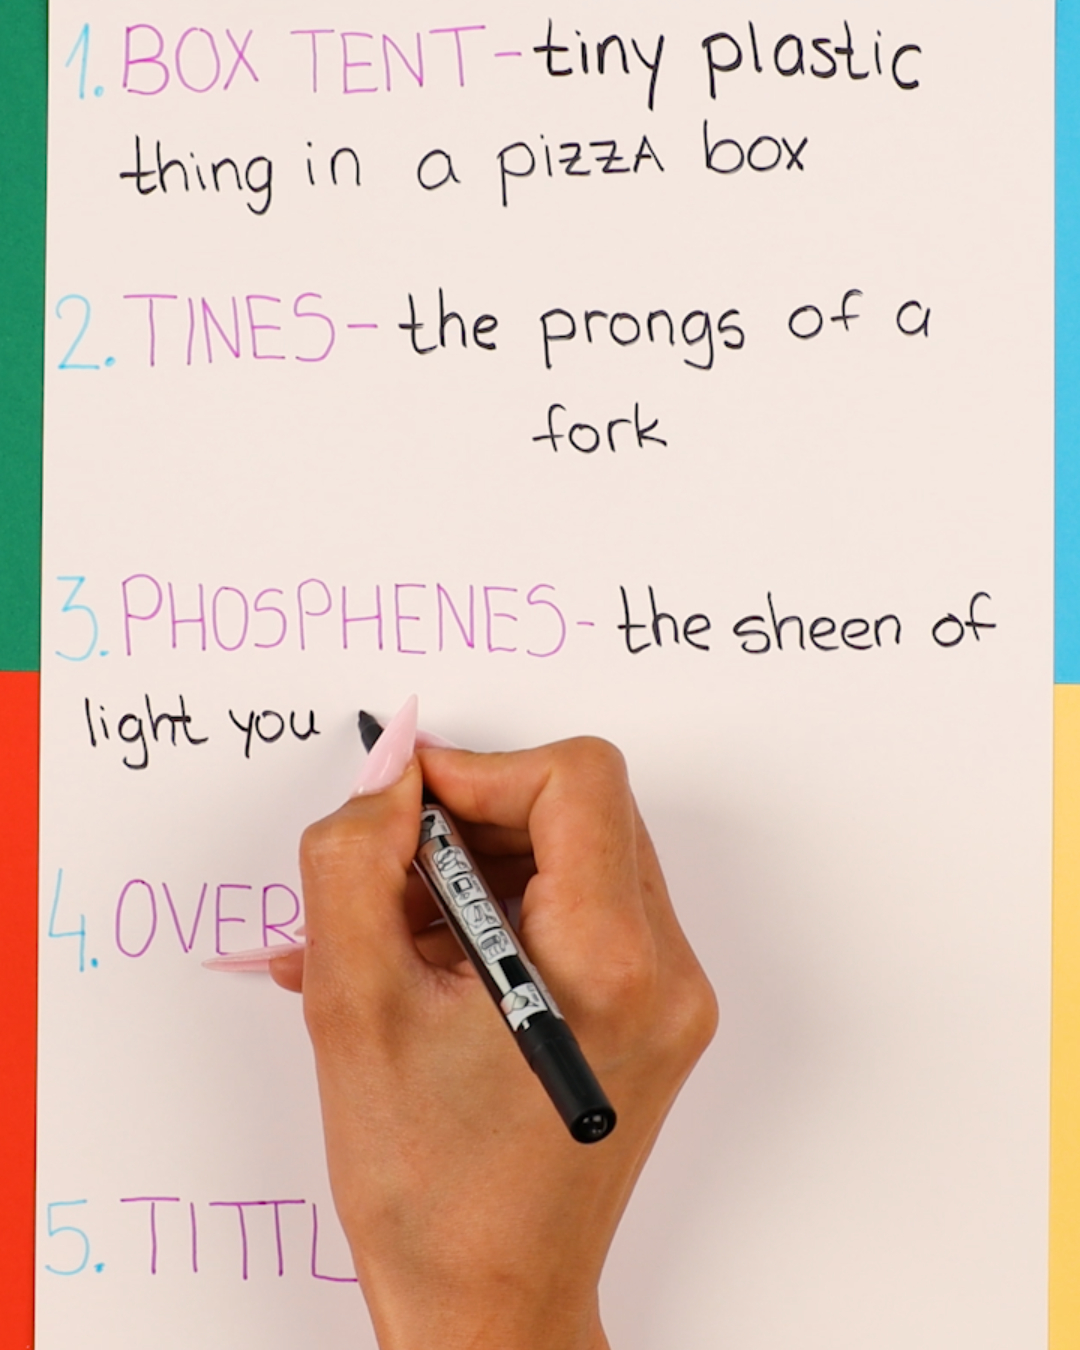 1. BOX TENT - tiny plastic
thing in a pizzA box
2. TINES - the prongs of a
fork
3. PHOSPHENES - the sheen of
light you
4. OVER
5. TITTL